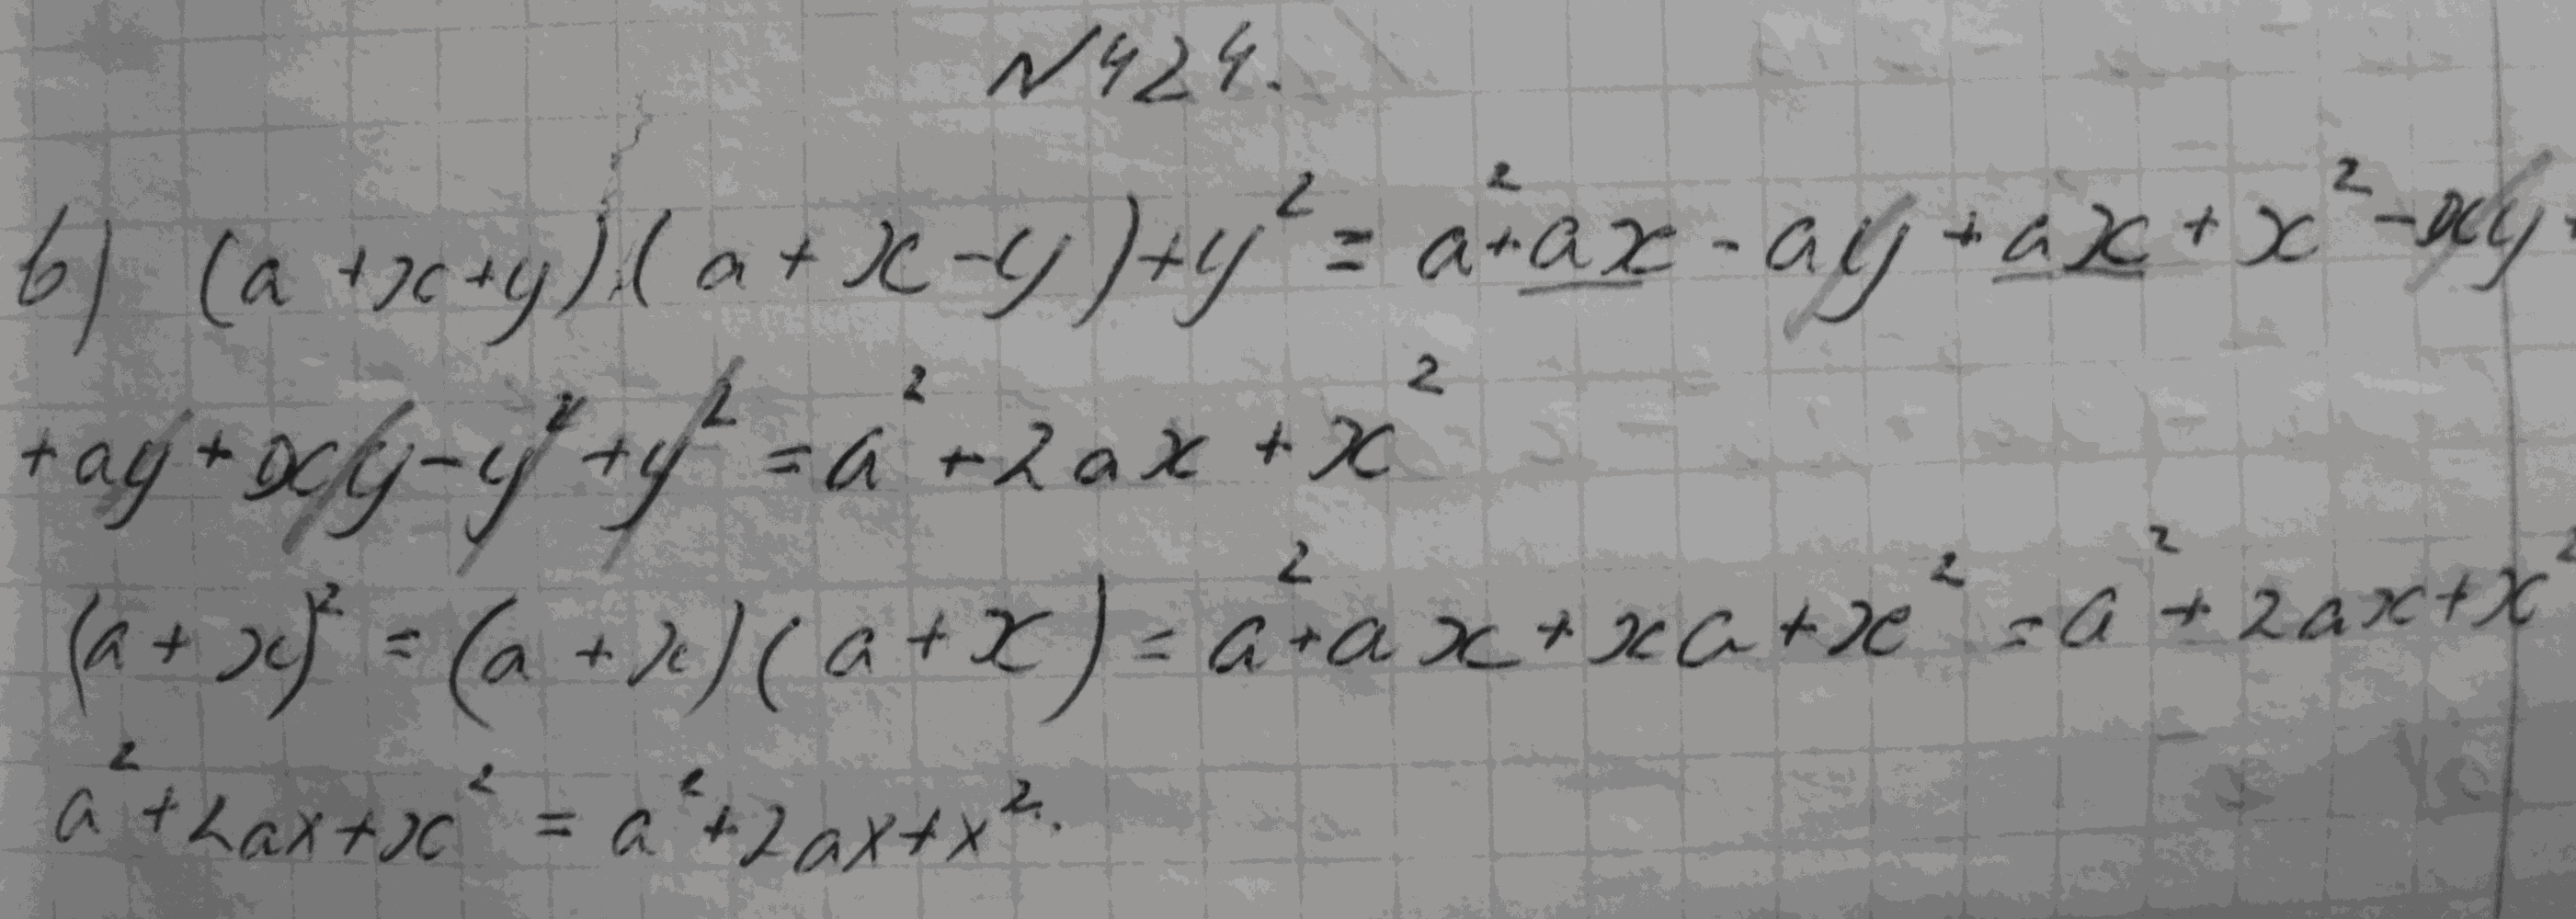 №424.
в) (a+x+y)·(a+x-y)+y² = a²+ax-ay+ax+x²-xy+
+ay+xy-y²+y² = a²+2ax+x²
(a+x)² = (a+x)(a+x) = a²+ax+xa+x² = a²+2ax+x²
a²+2ax+x² = a²+2ax+x².